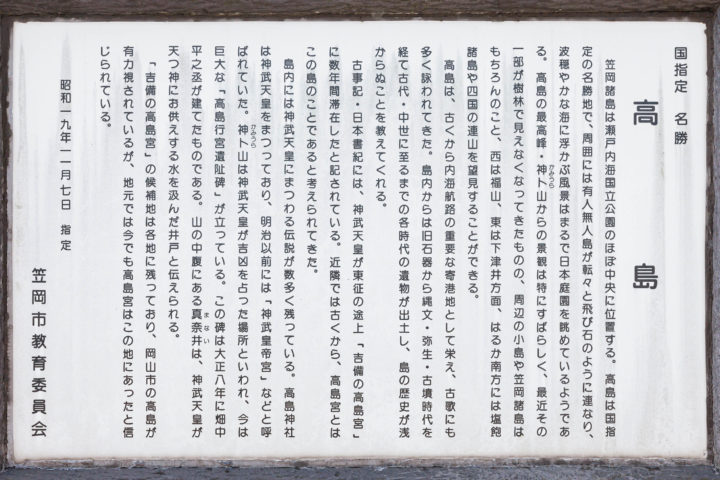 国指定　名勝
高　島
笠岡諸島は瀬戸内海国立公園のほぼ中央に位置する。高島は国指
定の名勝地で、周囲には有人無人島が転々と飛び石のように連なり、
波穏やかな海に浮かぶ風景はまるで日本庭園を眺めているようであ
る。高島の最高峰・神卜山からの景観は特にすばらしく、最近その
一部が樹林で見えなくなってきたものの、周辺の小島や笠岡諸島は
もちろんのこと、西は福山、東は下津井方面、はるか南方には塩飽
諸島や四国の連山を望見することができる。
高島は、古くから内海航路の重要な寄港地として栄え、古歌にも
多く詠われてきた。島内からは旧石器から縄文・弥生・古墳時代を
経て古代・中世に至るまでの各時代の遺物が出土し、島の歴史が浅
からぬことを教えてくれる。
古事記・日本書紀には、神武天皇が東征の途上「吉備の高島宮」
に数年間滞在したと記されている。近隣では古くから、高島宮とは
この島のことであると考えられてきた。
島内には神武天皇にまつわる伝説が数多く残っている。高島神社
は神武天皇をまつっており、明治以前には「神武皇帝宮」などと呼
ばれていた。神卜山は神武天皇が吉凶を占った場所といわれ、今は
巨大な「高島行宮遺阯碑」が立っている。この碑は大正八年に畑中
平之丞が建てたものである。山の中腹にある真奈井は、神武天皇が
天つ神にお供えする水を汲んだ井戸と伝えられる。
「吉備の高島宮」の候補地は各地に残っており、岡山市の高島が
有力視されているが、地元では今でも高島宮はこの地にあったと信
じられている。
昭和一九年一一月七日　指定
笠岡市教育委員会